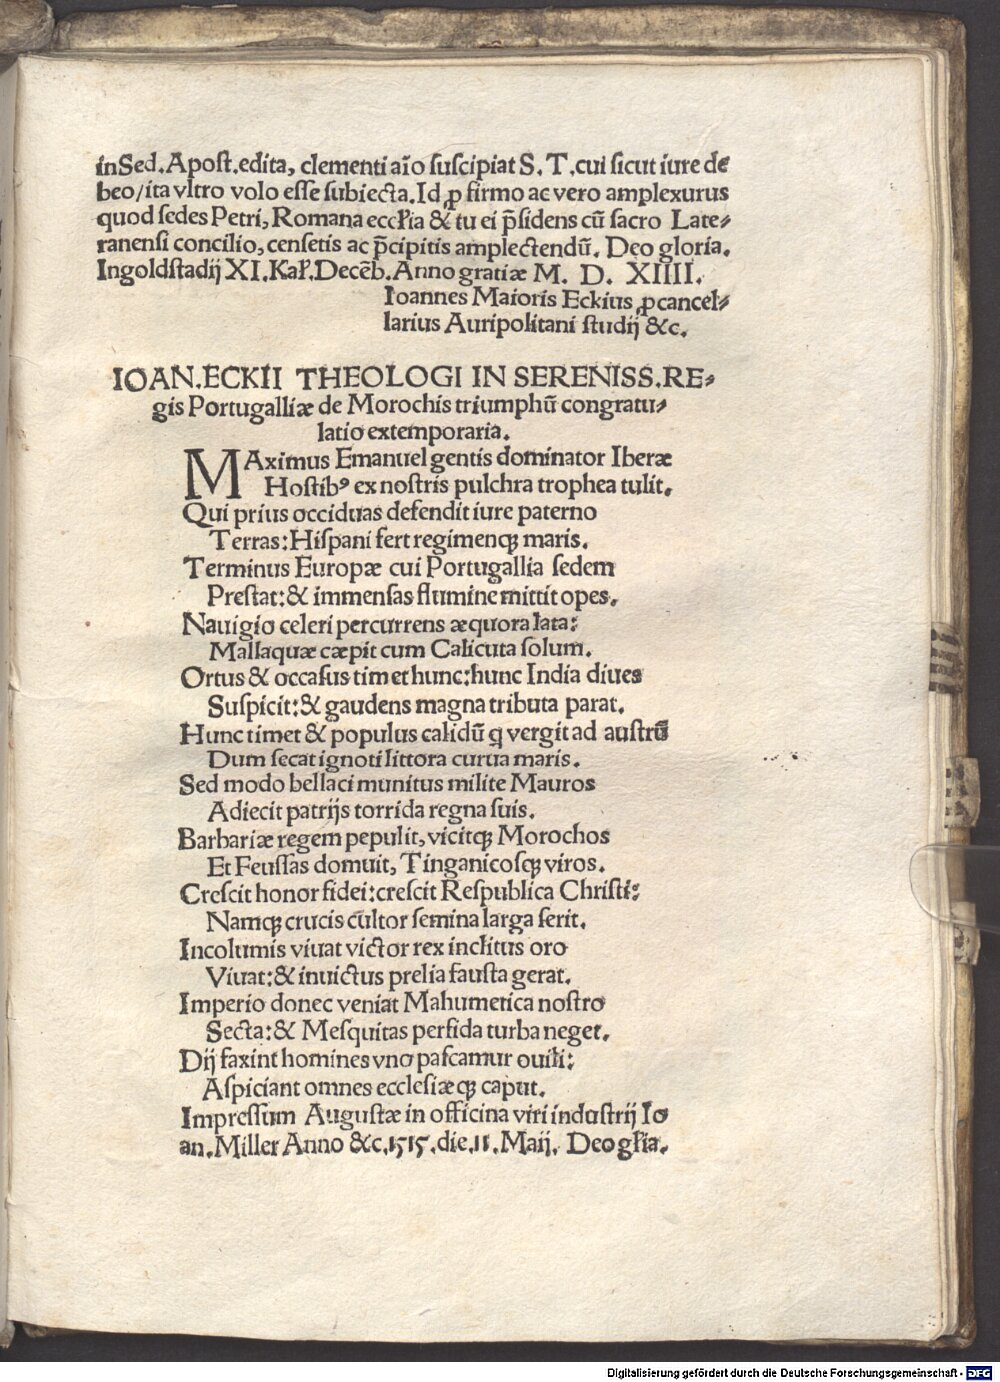 in Sed. Apost. edita, clementi aīo suscipiat S. T. cui sicut iure de
beo/ita vltro volo esse subiecta. Id ꝓ firmo ac vero amplexurus
quod sedes Petri, Romana eccłia & tu ei p̄sidens cū sacro Late⸗
ranensi concilio, censetis ac p̄cipitis amplectendū. Deo gloria.
Ingoldstadij XI. Kal'. Decēb. Anno gratiæ M. D. XIIII.
Ioannes Maioris Eckius ꝓcancel⸗
larius Auripolitani studij &c.
IOAN. ECKII THEOLOGI IN SERENISS. RE⸗
gis Portugalliæ de Morochis triumphū congratu⸗
latio extemporaria.
MAximus Emanuel gentis dominator Iberæ
Hostibꝰ ex nostris pulchra trophea tulit.
Qui prius occiduas defendit iure paterno
Terras: Hispani fert regimenqꝫ maris.
Terminus Europæ cui Portugallia sedem
Prestat: & immensas flumine mittit opes.
Nauigio celeri percurrens æquora lata:
Mallaquæ cæpit cum Calicuta solum.
Ortus & occasus timet hunc: hunc India diues
Suspicit: & gaudens magna tributa parat.
Hunc timet & populus calidū q vergit ad austrū
Dum secat ignoti littora curua maris.
Sed modo bellaci munitus milite Mauros
Adiecit patrijs torrida regna suis.
Barbariæ regem pepulit, vicitqꝫ Morochos
Et Feussas domuit, Tinganicosqꝫ viros.
Crescit honor fidei: crescit Respublica Christi:
Namqꝫ crucis cultor semina larga serit.
Incolumis viuat victor rex inclitus oro
Viuat: & inuictus prelia fausta gerat.
Imperio donec veniat Mahumetica nostro
Secta: & Mesquitas perfida turba neget.
Dij faxint homines vno pascamur ouili:
Aspiciant omnes ecclesiæqꝫ caput.
Impressum Augustæ in officina viri industrij Io
an. Miller Anno &c. 1515. die. 11. Maij. Deo głia.
Digitalisierung gefördert durch die Deutsche Forschungsgemeinschaft - DFG